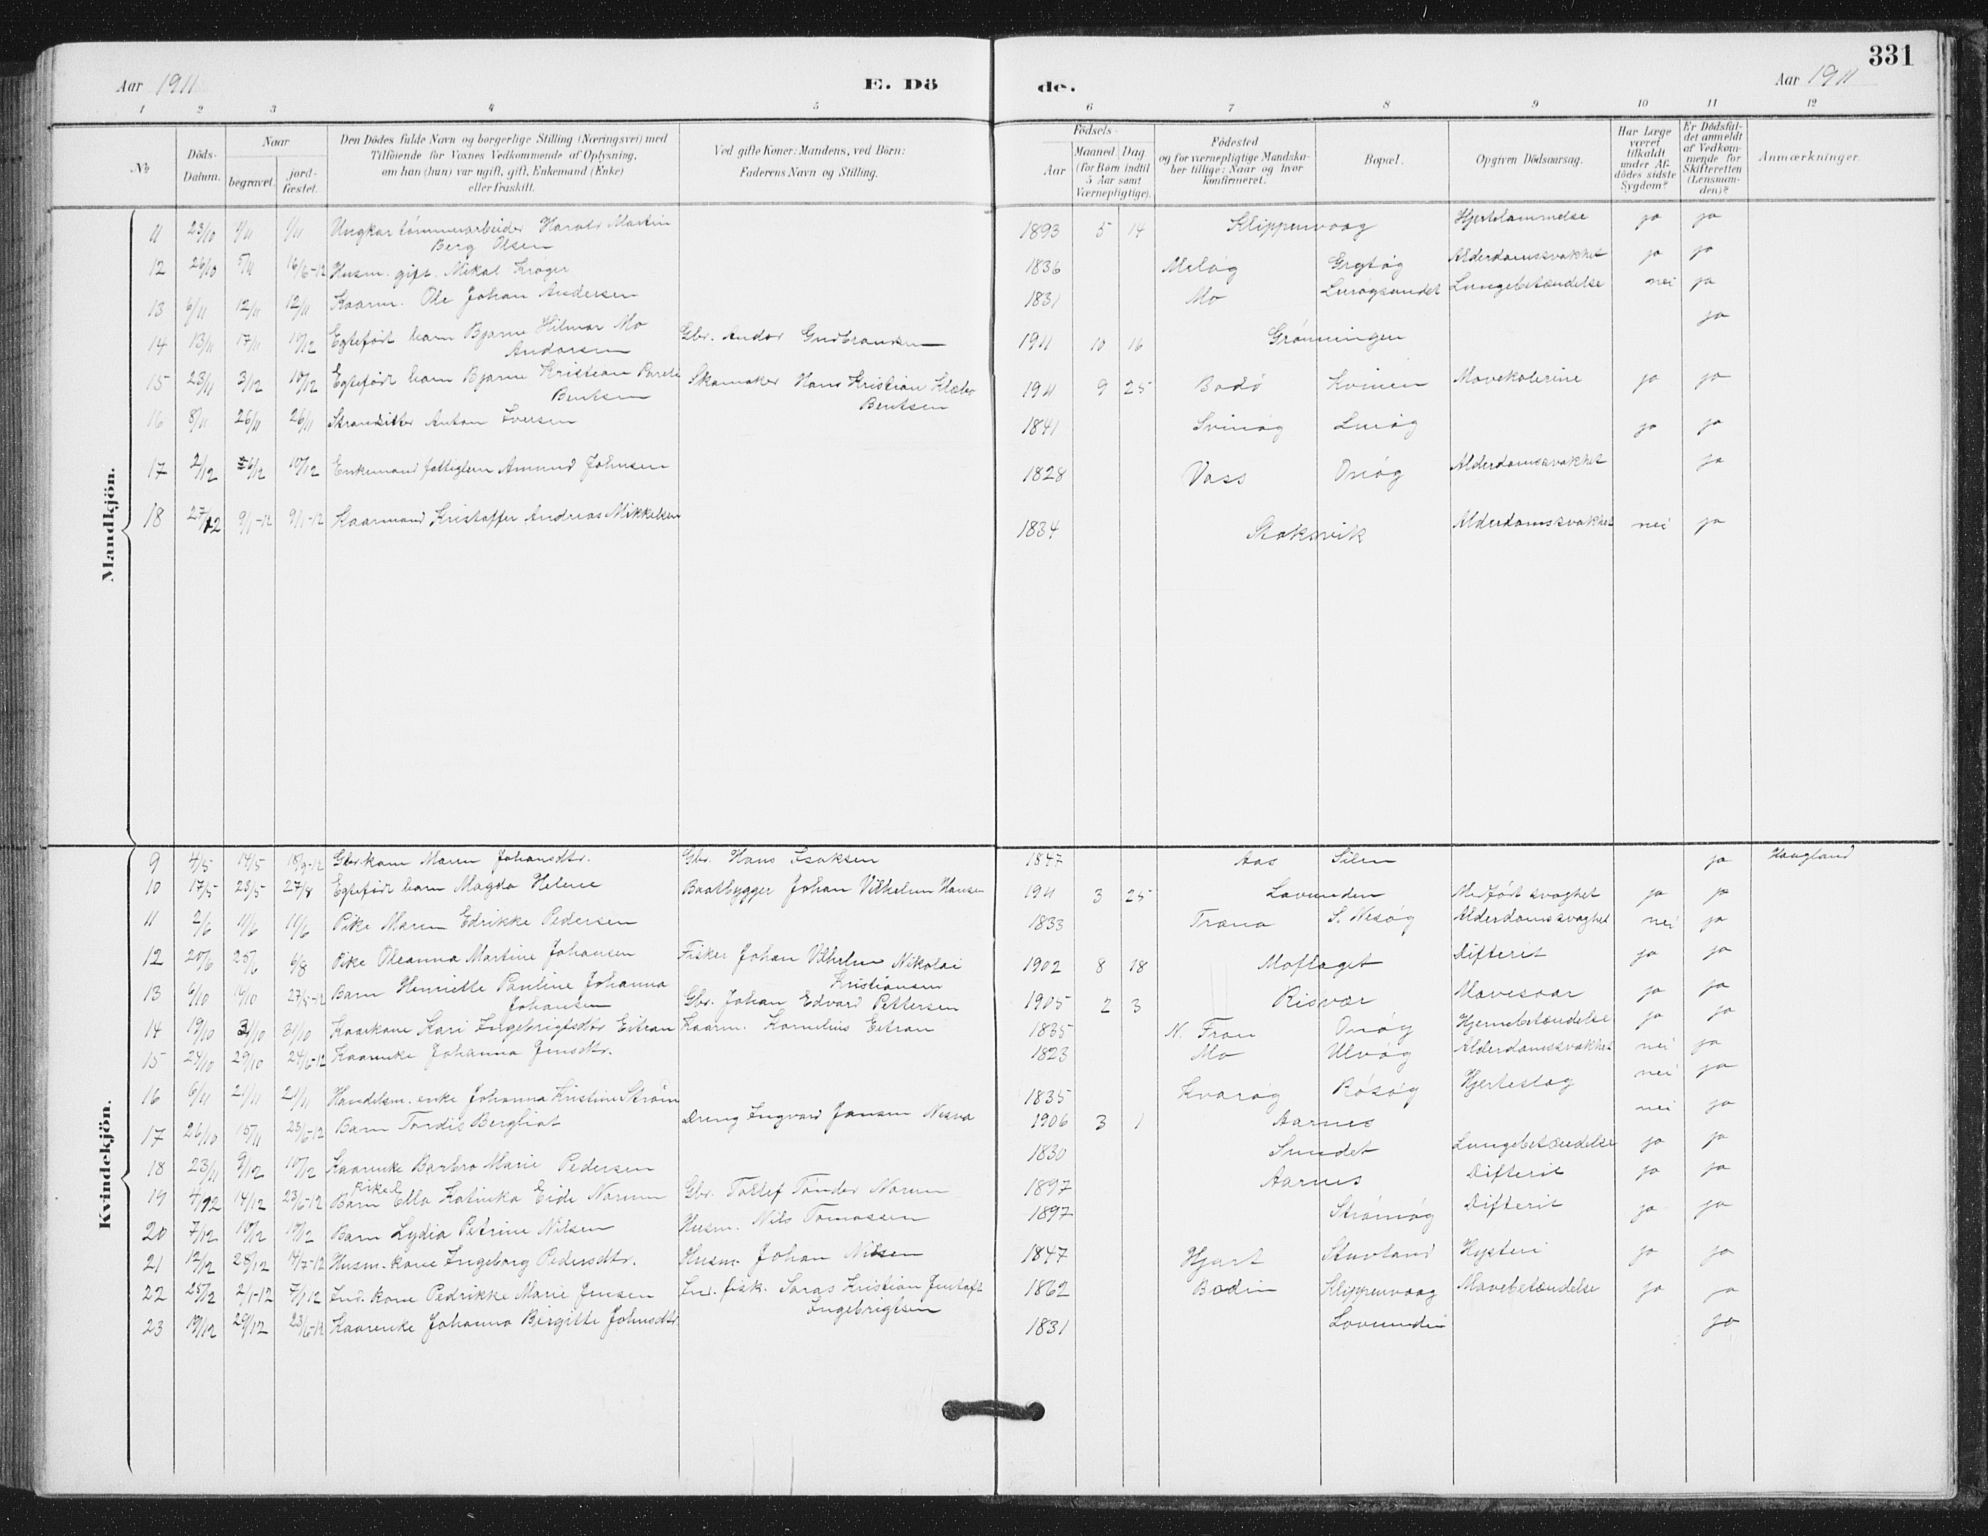 331
Aar 1911 E. Dö de. Aar 1911
1 2 3 4 5 6 7 8 9 10 11 12
No Döds-Datum. Naar begravet. jord-fæstet. Den Dödes fulde Navn og borgerlige Stilling (Næringsvei) med Tilföiende for Voxnes Vedkommende af Oplysning, om han (hun) var ugift, gift, Enkemand (Enke) eller fraskilt. Ved gifte Koner: Mandens, ved Börn: Faderens Navn og Stilling. Födsels- Aar Maaned Dag (for Börn indtil 5 Aar samt Værnepligtige). Födested og for værnepligtige Mandska-ber tillige: Naar og hvor konfirmeret. Bopæl. Opgiven Dödsaarsag. Har Læge været tilkaldt under Af-dödes sidste Sygdom? Er Dödsfal-det anmeldt af Vedkom-mende for Skifteretten (Lensman-den)? Anmærkninger.
Mandkjön.
11 23/10 4/11 4/11 Ungkar tømmerarbeider Harald Martin Berg Olsen 1893 5 14 Klippenvaag Hjertelammelse ja ja
12 26/10 5/11 16/6-12 Husm. gift. Nikal Krøger 1836 Meløy Grytøy Alderdomssvakhet ja ja
13 6/11 12/11 12/11 Kaarm. Ole Johan Andersen 1831 Mo Lurøysundet Lungebetændelse nei ja
14 13/11 17/11 10/12 Egtefødt barn Bjarne Hilmar Mo Andersen Gbr. Andor Gudbrandsen 1911 10 16 Grønningen ja
15 23/11 3/12 10/12 Egtefødt barn Bjarne Kristian Bentsen Skomaker Hans Kristian Bentsen 1911 9 25 Bodø Kvinen Mavekolerine ja ja
16 8/11 26/11 26/11 Strandsitter Anton Iversen 1841 Svinøy Lurøy ja ja
17 2/12 6/12 10/12 Enkemand fattiglem Amund Johnsen 1828 Voss Onøy Alderdomssvakhet ja
18 27/12 9/1-12 9/1-12 Kaarmand Kristoffer Andreas Mikkelsen 1834 Stoksvik Alderdomssvakhet nei ja
Kvindekjön.
9 4/5 14/5 18/9-12 Gbr.kone Maren Johansdtr. Gbr. Hans Isaksen 1847 Aas Silen ja Haugland
10 17/5 23/5 27/8 Egtefødt barn Magda Helene Baatbygger Johan Vilhelm Hansen 1911 3 25 Lovunden Medfødt svaghet ja ja
11 2/6 11/6 11/6 Pike Maren Edrikke Pedersen 1833 Træna S. Nesøy Alderdomssvaghet nei ja
12 20/6 25/6 6/8 Pike Oleanna Martine Johansen Fisker Johan Vilhelm Nikolai Kristiansen 1902 8 18 Moflaget Difterit ja ja
13 6/10 14/10 27/5-12 Barn Henriette Pauline Johanna Johansen Gbr. Johan Edvard Pettersen 1905 2 3 Risvær Mavesaar ja ja
14 19/10 31/10 31/10 Kaarkone Kari Ingebrigtsdtr Eitran Kaarm. Kornelius Eitran 1835 N. Fron Onøy Hjernebetændelse ja ja
15 24/10 29/10 24/6-12 Kaarenke Johanna Jensdtr. 1823 Mo Ulvøy Alderdomssvakhet nei ja
16 6/11 21/11 21/11 Handelsm. enke Johanna Kristine Strøm 1835 Kvarøy Rösöy Hjerteslag nei ja
17 26/10 15/11 23/6-12 Barn Tordis Bergliot Dreng Ingvard Jensen Nesva 1906 3 1 Aarnes nei ja
18 23/11 9/12 10/12 Kaarenke Barbro Marie Pedersen 1830 Sundet Lungebetændelse ja ja
19 4/12 14/12 23/6-12 Barn Pike Ella Katinka Eide Norum Gbr. Tollef Tønder Norum 1897 Aarnes Difterit ja ja
20 7/12 10/12 10/12 Barn Lydia Petrine Nilsen Husm. Nils Tomassen 1897 Strømøy Difterit ja ja
21 12/12 28/12 14/7-12 Husm.-kone Ingeborg Pedersdtr. Husm. Johan Nilsen 1847 Hjart Stuvland Hysteri ja ja
22 25/12 2/1-12 7/1 12 Ind. kone Pedrikke Marie Jensen Ind. fisk. Kristian Jentoft Ingebrigtsen 1862 Bodin Klippenvaag Mavebetændelse ja ja
23 19/12 29/12 23/6-12 Kaarenke Johanna Birgitte Johnsdtr 1831 Lovunden ja